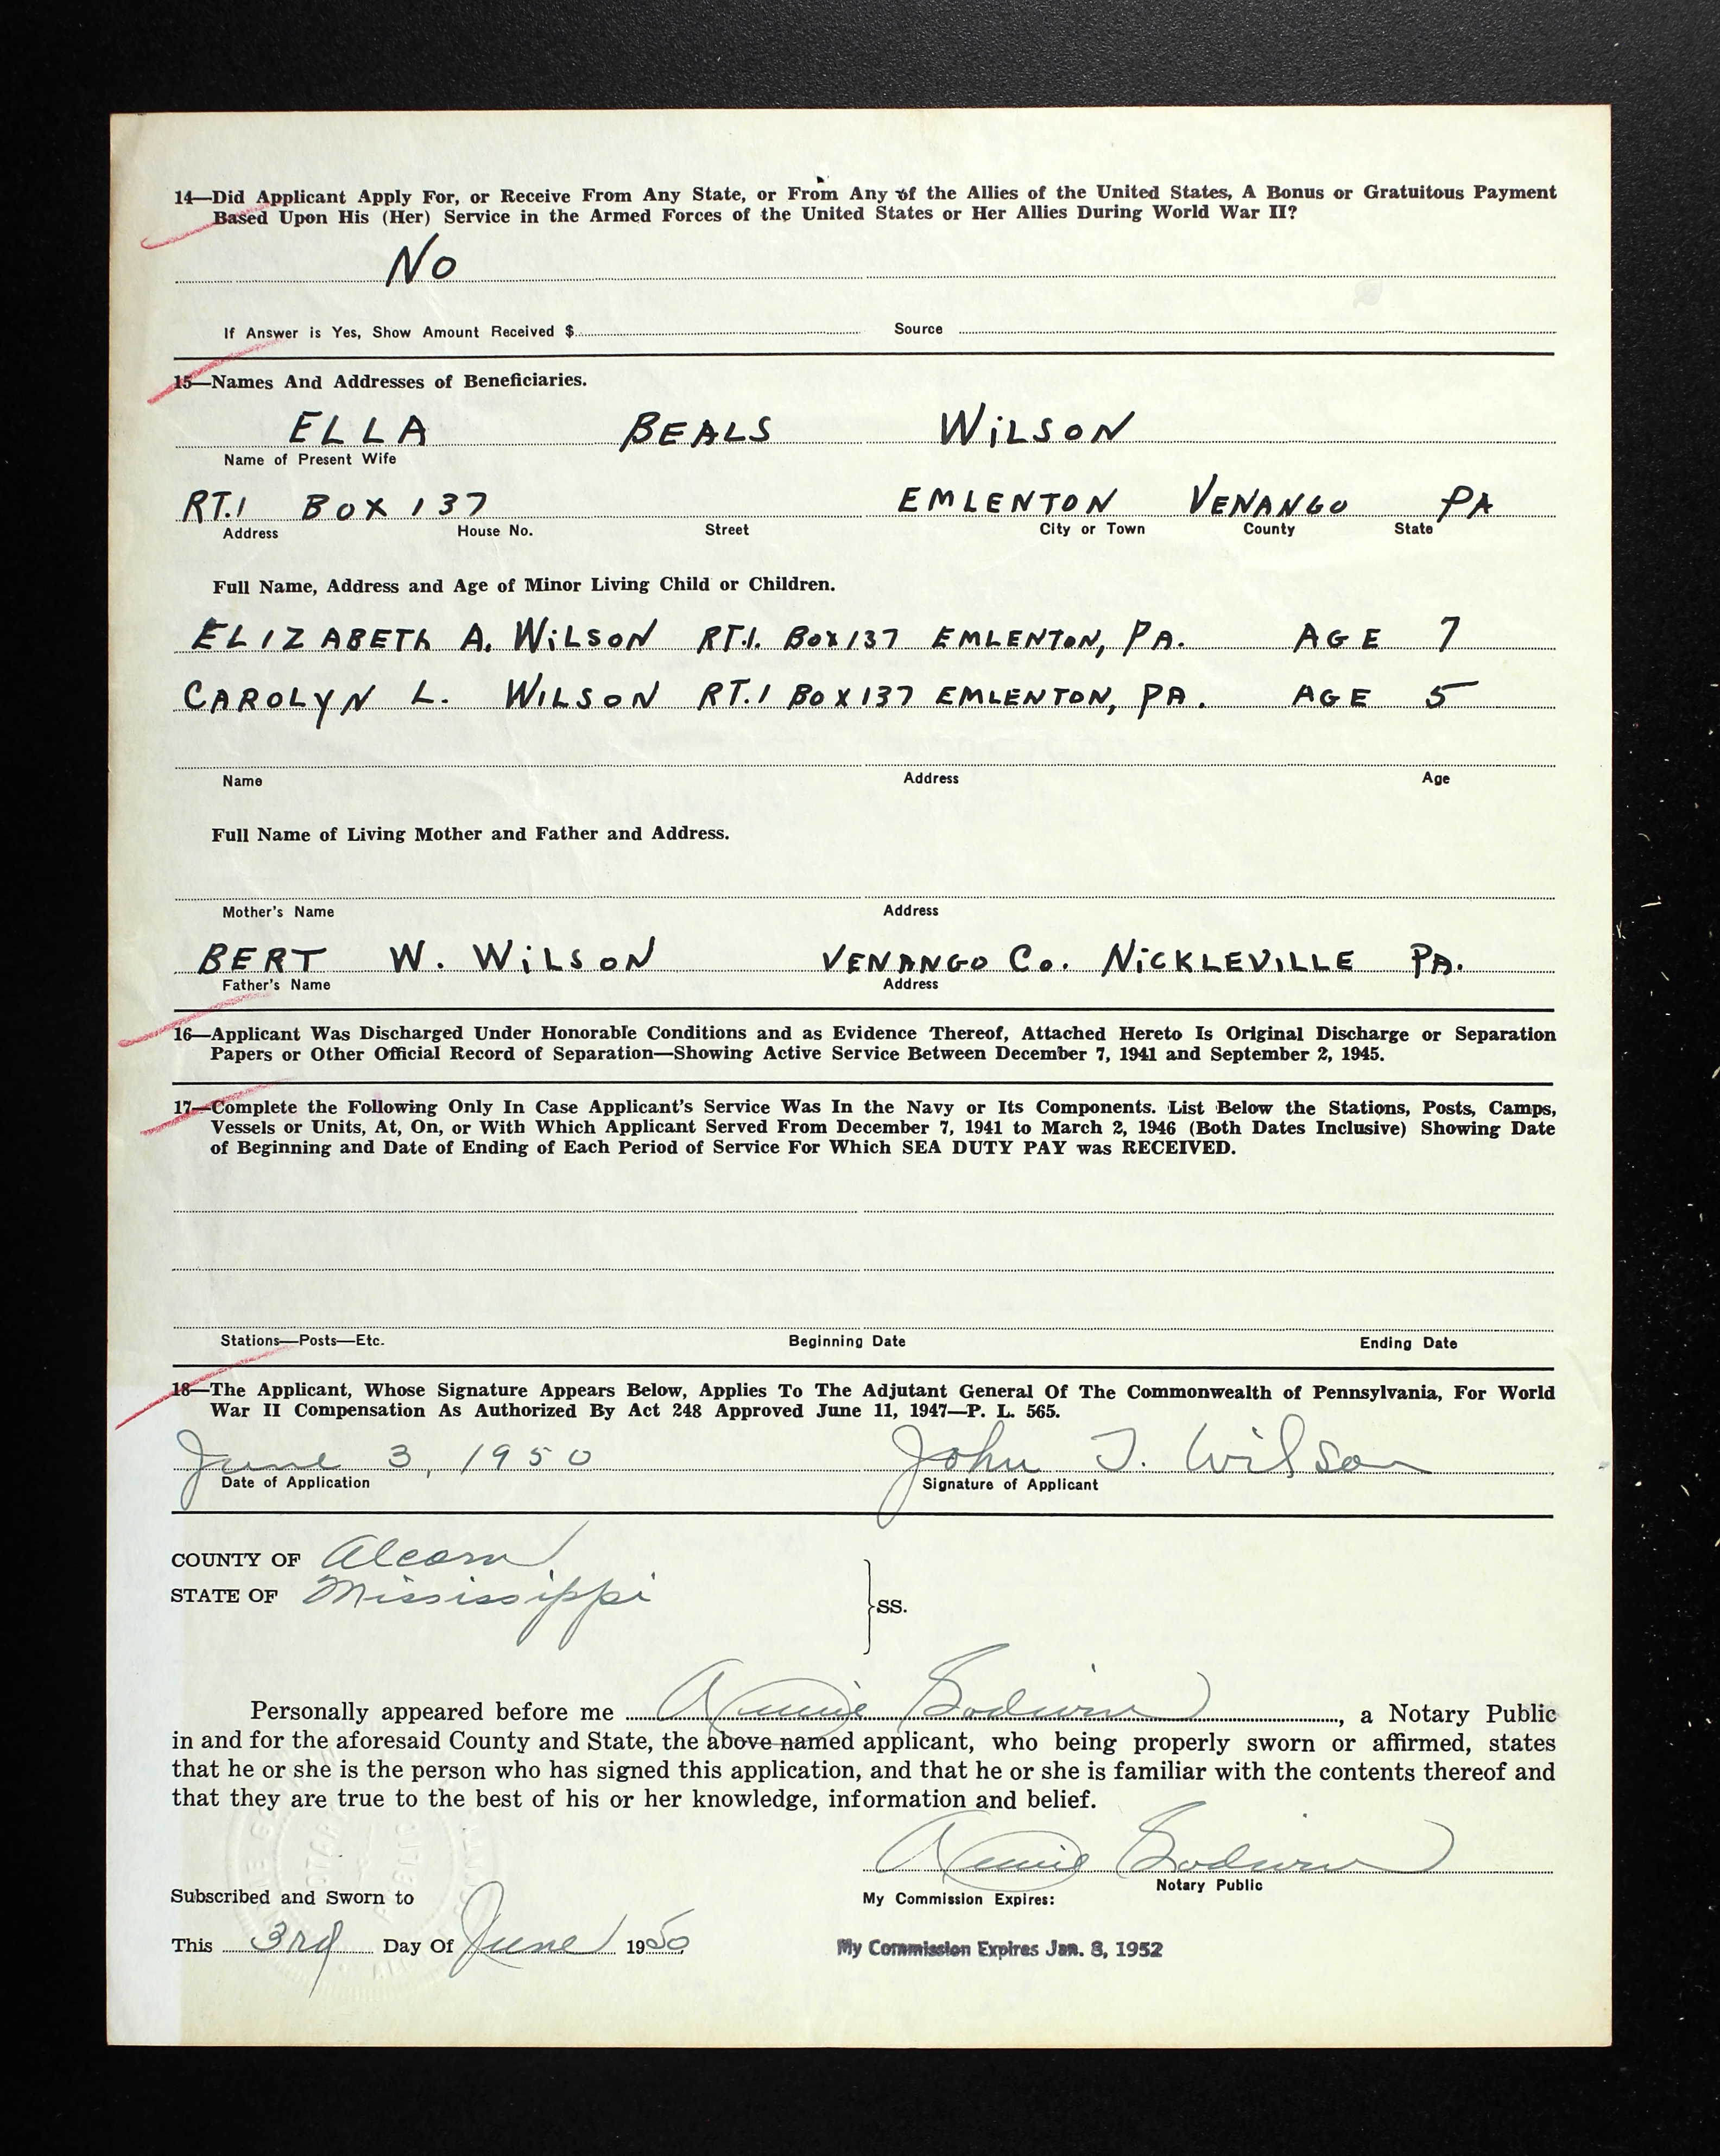 14—Did Applicant Apply For, or Receive From Any State, or From Any of the Allies of the United States, A Bonus or Gratuitous Payment
Based Upon His (Her) Service in the Armed Forces of the United States or Her Allies During World War II?
No
If Answer is Yes, Show Amount Received $ Source
15—Names And Addresses of Beneficiaries.
ELLA BEALS WILSON
Name of Present Wife
RT.1 BOX 137 EMLENTON VENANGO PA
Address House No. Street City or Town County State
Full Name, Address and Age of Minor Living Child or Children.
ELIZABETH A. WILSON RT.1. BOX 137 EMLENTON, PA. AGE 7
CAROLYN L. WILSON RT.1 BOX 137 EMLENTON, PA. AGE 5
Name Address Age
Full Name of Living Mother and Father and Address.
Mother's Name Address
BERT W. WILSON VENANGO Co. NICKLEVILLE PA.
Father's Name Address
16—Applicant Was Discharged Under Honorable Conditions and as Evidence Thereof, Attached Hereto Is Original Discharge or Separation
Papers or Other Official Record of Separation—Showing Active Service Between December 7, 1941 and September 2, 1945.
17—Complete the Following Only In Case Applicant's Service Was In the Navy or Its Components. List Below the Stations, Posts, Camps,
Vessels or Units, At, On, or With Which Applicant Served From December 7, 1941 to March 2, 1946 (Both Dates Inclusive) Showing Date
of Beginning and Date of Ending of Each Period of Service For Which SEA DUTY PAY was RECEIVED.
Stations—Posts—Etc. Beginning Date Ending Date
18—The Applicant, Whose Signature Appears Below, Applies To The Adjutant General Of The Commonwealth of Pennsylvania, For World
War II Compensation As Authorized By Act 248 Approved June 11, 1947—P. L. 565.
June 3, 1950 John T. Wilson
Date of Application Signature of Applicant
COUNTY OF Alcorn
STATE OF Mississippi
SS.
Personally appeared before me Annie Godwin, a Notary Public
in and for the aforesaid County and State, the above named applicant, who being properly sworn or affirmed, states
that he or she is the person who has signed this application, and that he or she is familiar with the contents thereof and
that they are true to the best of his or her knowledge, information and belief.
Annie Godwin
Notary Public
Subscribed and Sworn to My Commission Expires:
This 3rd Day Of June 1950 My Commission Expires Jan. 8, 1952